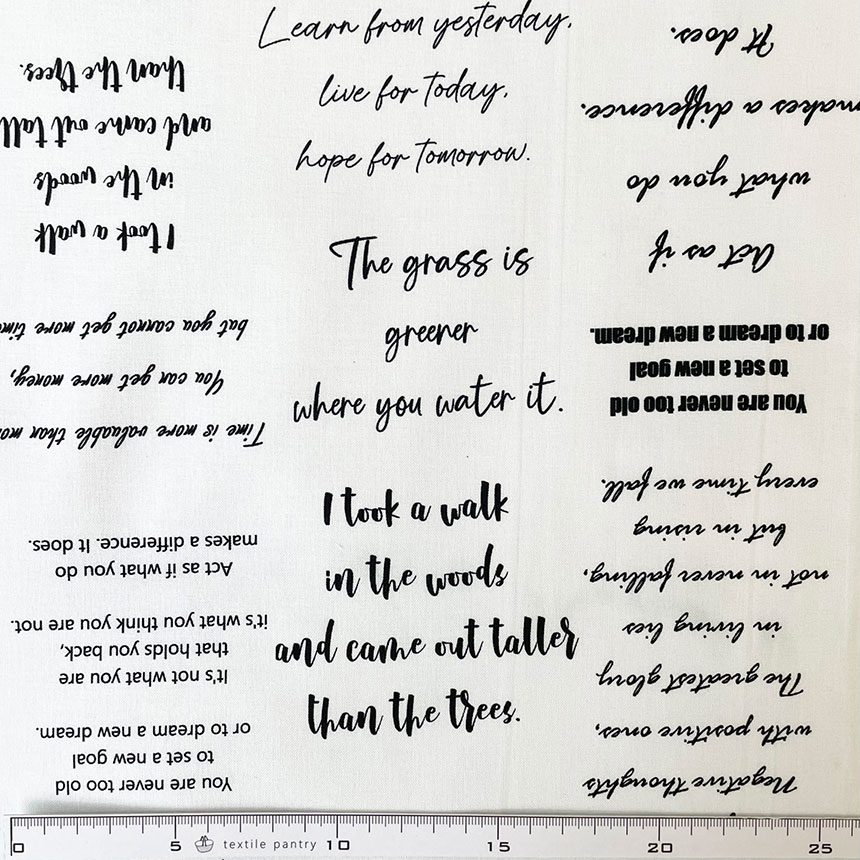 Learn from yesterday,
live for today,
hope for tomorrow.
The grass is
greener
where you water it.
I took a walk
in the woods
and came out taller
than the trees.
You are never too old
to set a new goal
or to dream a new dream.
It's not what you are
that holds you back,
it's what you think you are not.
Act as if what you do
makes a difference. It does.
Time is more valuable than
You can get more money,
but you cannot get more
I took a walk
in the woods
and came out tall
than the trees.
Negative thoughts
with positive ones,
The greatest glory
in living lies
not in never falling,
but in rising
every time we fall.
You are never too old
to set a new goal
or to dream a new dream.
Act as if
what you do
makes a difference.
It does.
0 5 textile pantry 10 15 20 25